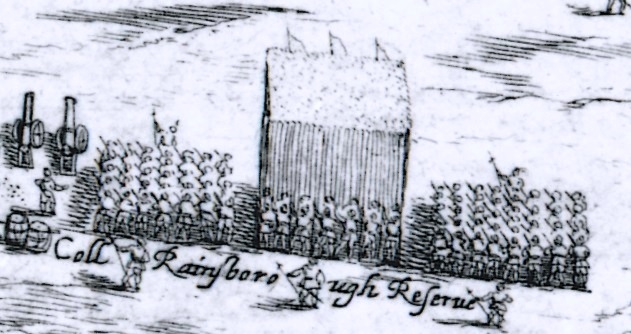 Coll Rainſborough Reſerue